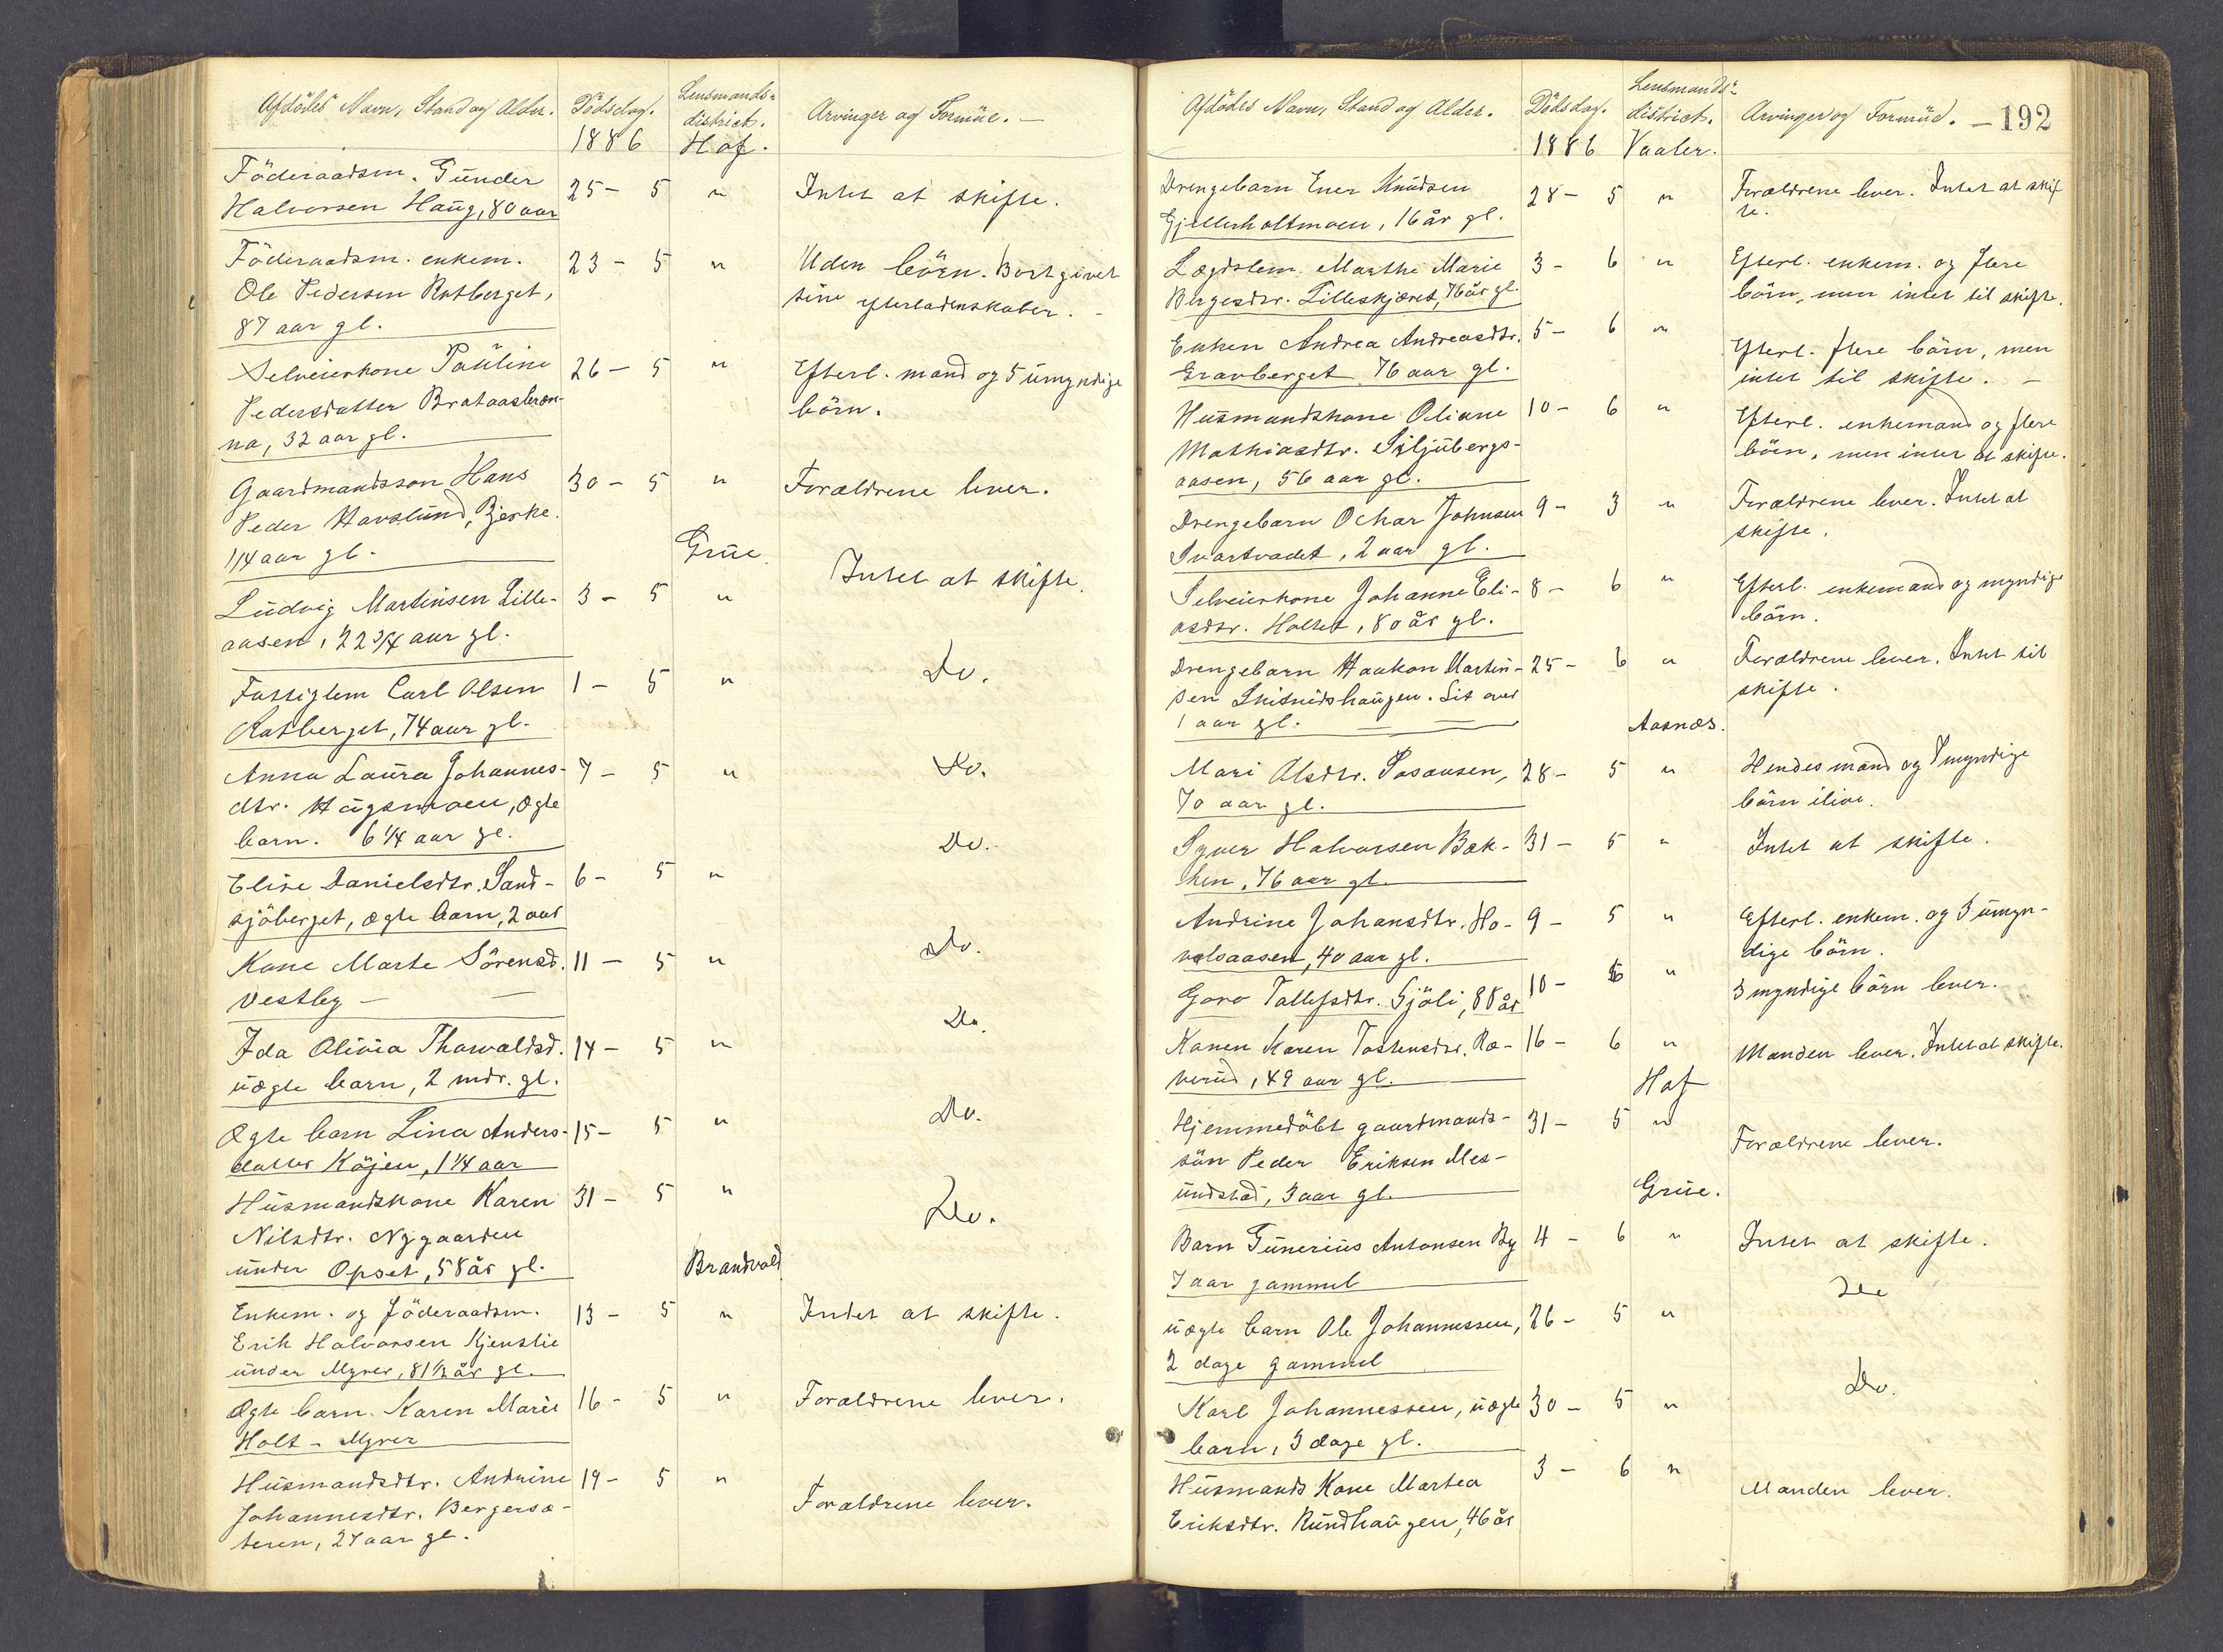 Afdödes Navn, Stand og Alder. Dödsdag. Lensmands-
district. Arvinger og Formue. —
1886 Hof.
Föderaadsm. Gunder 25 - 5 " Intet at skifte.
Halvorsen Haug, 80 aar
Föderaadsm. enkem. 23 - 5 " Uden börn. Bortgivet
Ole Pedersen Rotberget, sine efterladenskaber. -
87 aar gl.
Selveierkone Pauline 26 - 5 " Efterl. mand og 5 umyndige
Pedersdatter Brataasbræn- börn.
na, 32 aar gl.
Gaardmandsson Hans 30 - 5 " Forældrene lever.
Peder Havslund, Bjerke.
1/4 aar gl.
Grue
Ludvig Martinsen Lille- 3 - 5 " Intet at skifte.
aasen, 22 3/4 aar gl.
Fattiglem Carl Olsen 1 - 5 " Do.
Rotberget, 74 aar gl.
Anna Laura Johannes- 7 - 5 " Do.
dtr. Hugsmoen, ægte
barn. 6 1/4 aar gl.
Do.
Elise Danielsdtr. Sand- 6 - 5 "
sjöberget, ægte barn, 2 aar
Kone Marte Sörensd. 11 - 5 " Do.
Vestby —
Ida Olivia Thorvaldsd. 14 - 5 " Do.
uægte barn, 2 mdr. gl.
Ægte barn Lina Anders- 15 - 5 " Do.
datter Köjen, 1 1/4 aar
Husmandskone Karen 31 - 5 " Do.
Nilsdtr. Nygaarden
under Opset, 58 år gl.
Brandvold
Enkem. og föderaadsm. 13 - 5 " Intet at skifte.
Erik Halvorsen Kjenslie
under Myrer, 81 1/2 år gl.
Ægte barn. Karen Marie 16 - 5 " Forældrene lever.
Holt - Myrer
Husmandsdtr. Andrine 19 - 5 " Forældrene lever.
Johannesdtr. Bergersæ-
teren, 27 aar gl.
Afdödes Navn, Stand og Alder. Dödsdag. Lensmands-
district. Arvinger og Formue. — 192
1886 Vaaler.
Drengebarn Ener Knudsen 28 - 5 " Forældrene lever. Intet at skif
Gjellerholtmoen, 16 år gl. te.
Lægdslem. Marthe Marie 3 - 6 " Efterl. enkem. og flere
Bergesdtr. Lilleskjæret, 76 år gl. börn, men intet til skifte.
Enken Andrea Andreasdtr. 5 - 6 " Efterl. flere börn, men
Gravberget 76 aar gl. intet til skifte. -
Husmandskone Oliane 10 - 6 " Efterl. enkemand og flere
Mathiasdtr. Siljubergs- börn, men intet at skifte.
aasen, 56 aar gl.
Drengebarn Ochar Johnsen 9 - 3 " Forældrene lever. Intet at
Svartvadet, 2 aar gl. skifte.
Selveierkone Johanne Eli- 8 - 6 " Efterl. enkemand og myndige
asdtr. Holtet, 80 år gl. börn.
Drengebarn Haakon Martin- 25 - 6 " Forældrene lever. Intet til
sen Snitnidshaugen. Lit over skifte.
1 aar gl.
Aasnæs.
Mari Olsdtr. Sosausen, 28 - 5 " Hendes mand og 7 myndige
70 aar gl. börn ilive.
Syver Halvorsen Bæk- 31 - 5 " Intet at skifte.
ken, 76 aar gl.
Andrine Johansdtr. Ho- 9 - 5 " Efterl. enkem. og 3 umyn-
velsaasen, 40 aar gl. dige börn.
Goro Tollefsdtr. Sjöli, 88 år 10 - 5 " 3 myndige börn lever.
Konen Karen Tostensdtr. Ræ- 16 - 6 " Manden lever. Intet at skifte.
verud, 49 aar gl.
Hof
Hjemmedöbt gaardmands- 31 - 5 " Forældrene lever.
sön Peder Eriksen Mes-
undstad, 3 aar gl.
Grue.
Barn Gunerius Antonsen By 4 - 6 " Intet at skifte.
7 aar gammel
uægte barn Ole Johannessen, 26 - 5 " Do
2 dage gammel
Karl Johannessen, uægte 30 - 5 " Do.
barn, 3 dage gl.
Husmands Kone Martea 3 - 6 " Manden lever.
Eriksdtr. Rundhaugen, 46 år